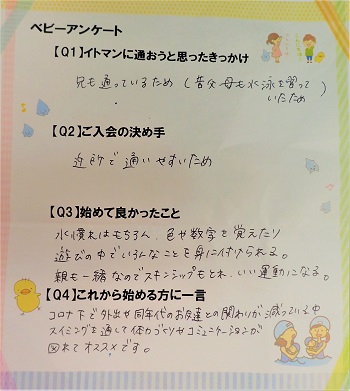 ベビーアンケート
【Q1】イトマンに通おうと思ったきっかけ
兄も通っているため（昔父母も水泳を習って
いたため）
【Q2】ご入会の決め手
近所で通いやすいため
【Q3】始めて良かったこと
水慣れはもちろん、色や数字を覚えたり
遊びの中でいろんなことを身に付けられる。
親も一緒なのでスキンシップもとれ、いい運動になる。
【Q4】これから始める方に一言
コロナ下で外出や同年代のお友達との関わりが減っている中
スイミングを通して体力づくりやコミュニケーションが
図れてオススメです。